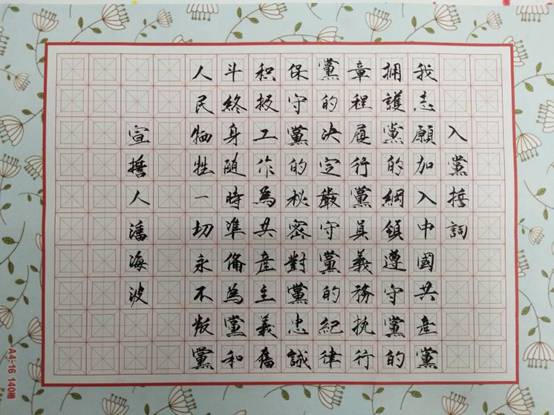 入黨誓詞
我志願加入中國共產黨
拥護黨的綱領遵守黨的
章程履行黨員義務執行
黨的决定嚴守黨的紀律
保守黨的秘密對黨忠誠
積极工作為共產主義奮
斗終身隨時準備為黨和
人民牺牲一切永不叛黨
宣誓人潘海波
A4-16 140格